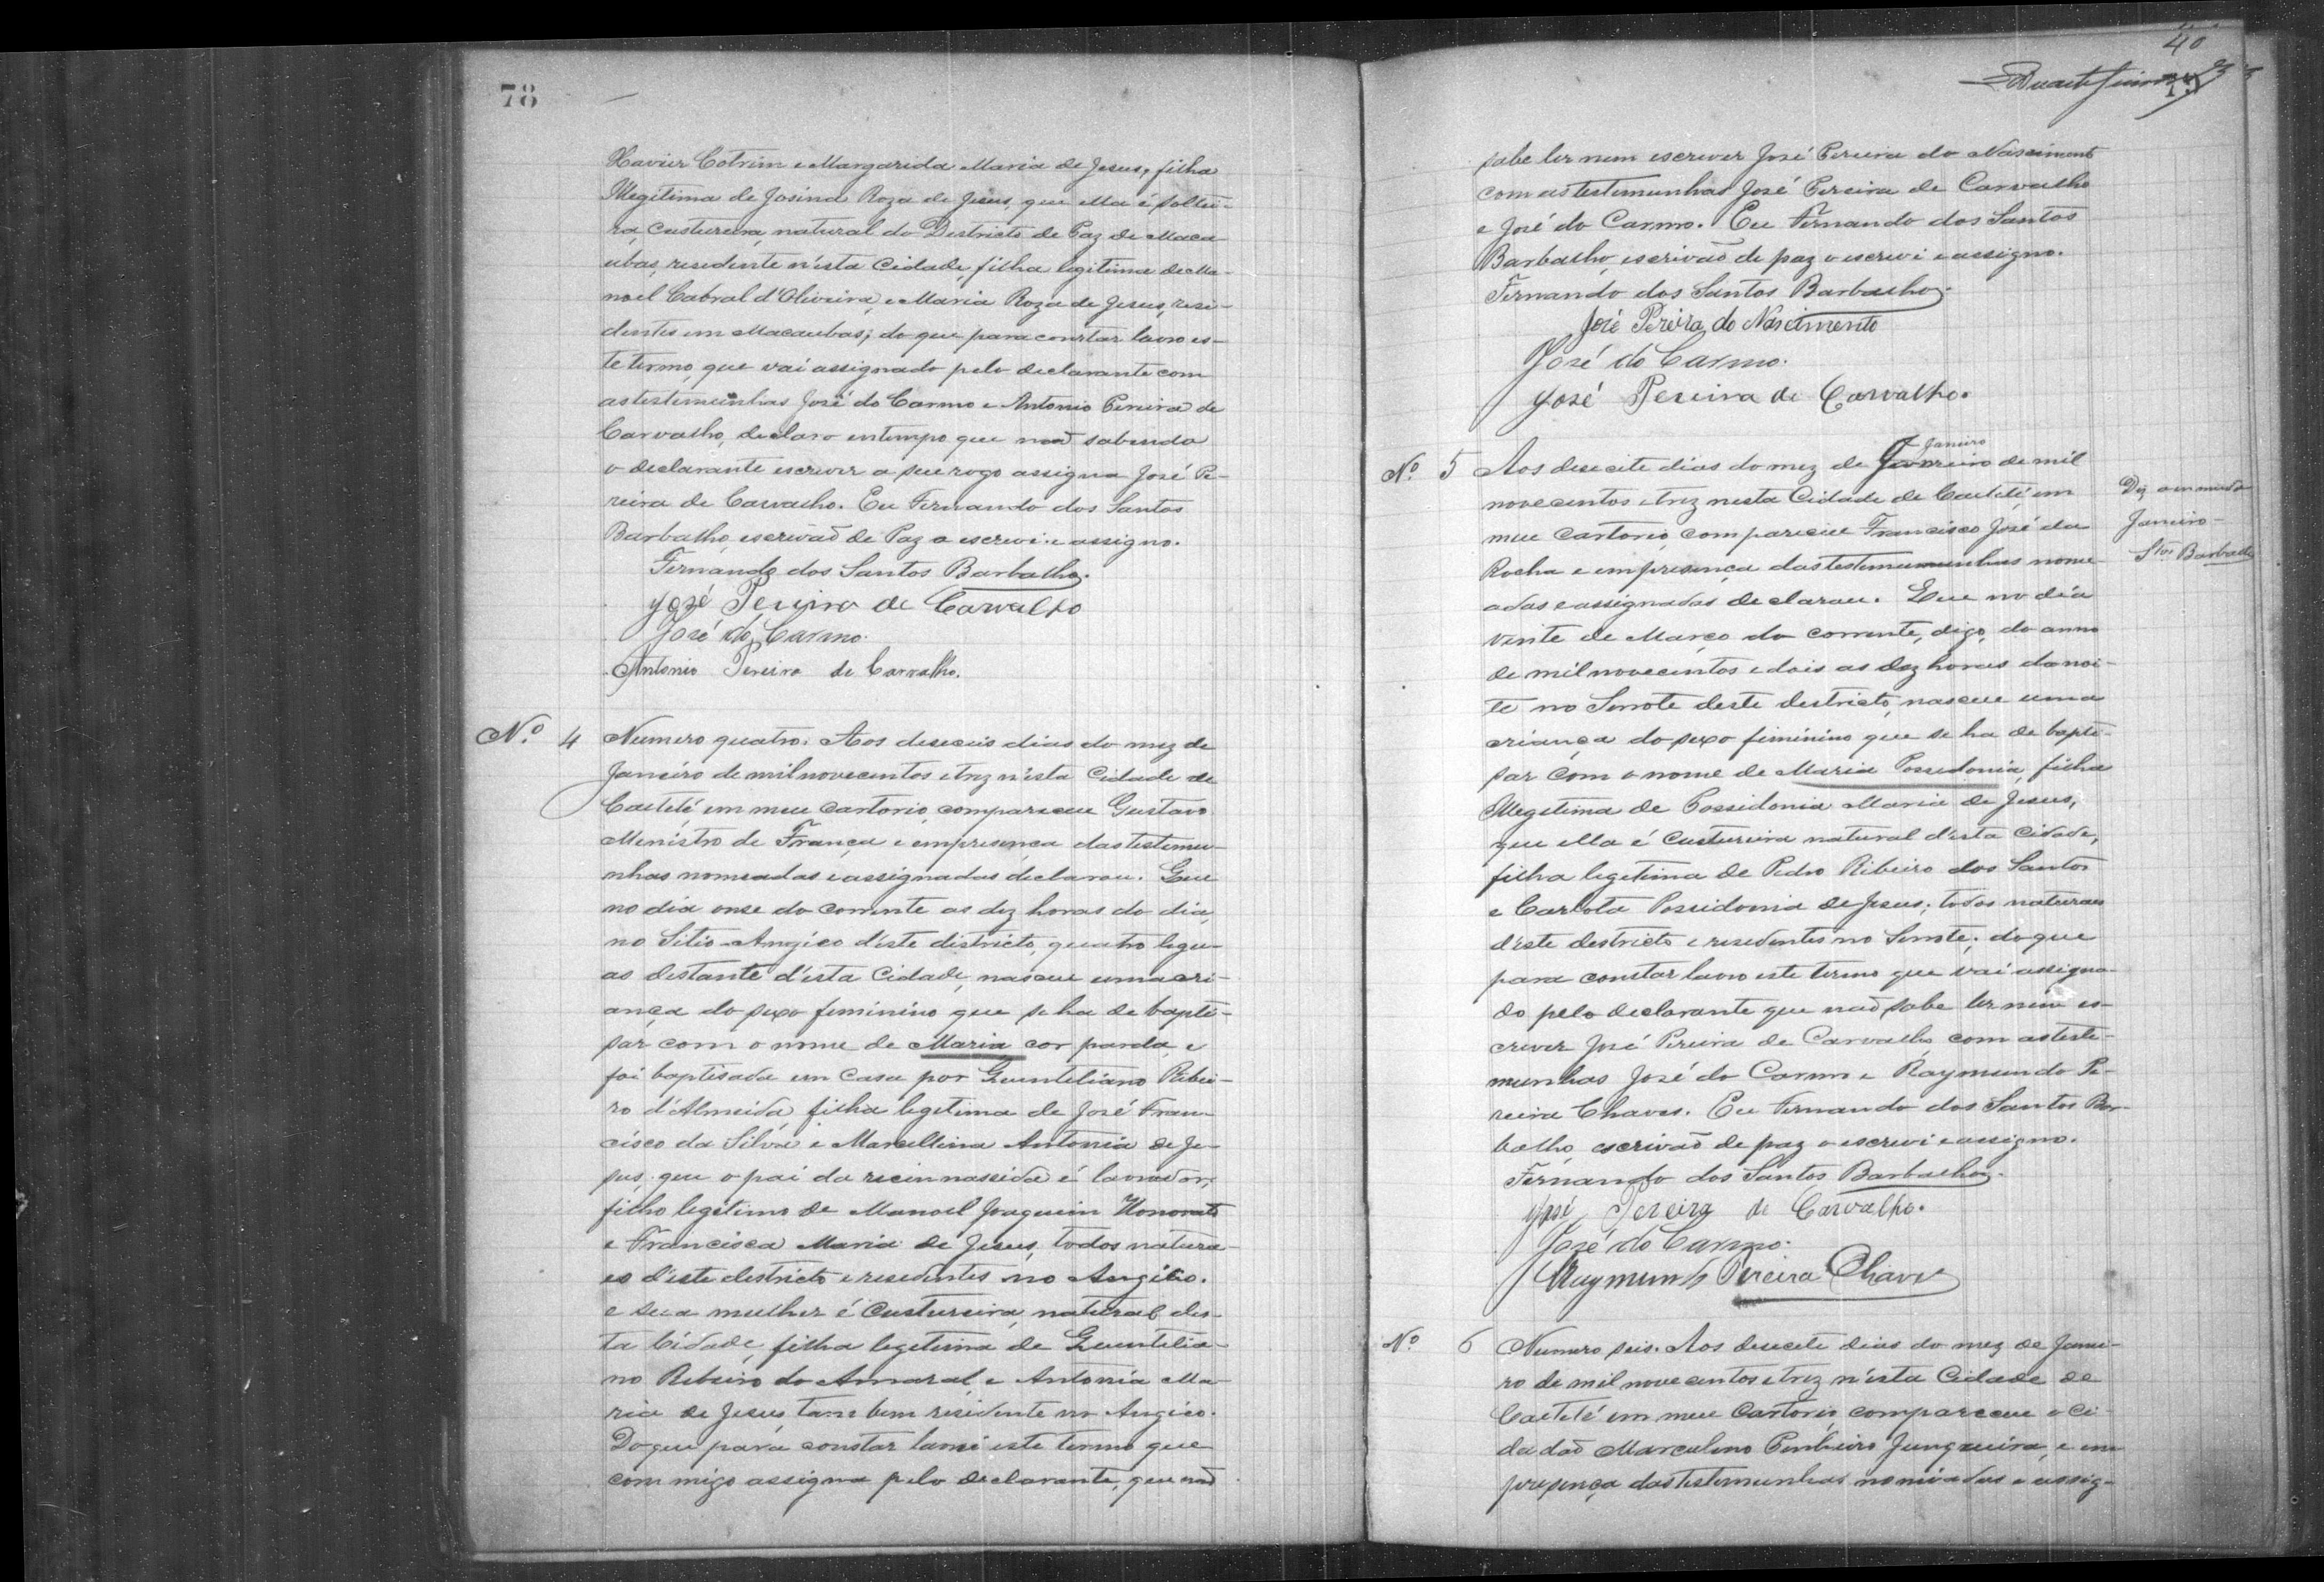 78
Xavier Cotrim e Margarida Maria de Jesus, filha
illegitima de Josina Roza de Jesus, que ella é soltei-
ra, custureira, natural do Destricto de Paz de Maca
ubas, residente n'esta Cidade, filha legitima de Ma-
noel Cabral d'Oliveira, e Maria Roza de Jesus, resi-
dentes em Macaubas; do que para constar lavro es-
te termo, que vai assignado pelo declarante com
as testemunhas José do Carmo e Antonio Pereira de
Carvalho, declaro em tempo que não sabendo
o declarante escrever a seu rogo assigna José Pe-
reira de Carvalho. Eu Fernando dos Santos
Barbalho, escrivão de Paz o escrevi e assigno.
Fernando dos Santos Barbalho.
José Pereira de Carvalho
José do Carmo.
Antonio Pereira de Carvalho.
No. 4 Numero quatro. Aos deseceis dias do mez de
Janeiro de mil novecentos e trez n'esta Cidade de
Caeteté, em meu cartorio, compareceu Gustavo
Menistro de França e em presença das testemu-
nhas nomeadas e assignadas declarou. Que
no dia onse do corrente as dez horas do dia,
no Sitio Angico d'este districto, quatro legu-
as destante d'esta Cidade, nasceu uma cri-
ança do sexo feminino que se ha de bapti-
sar com o nome de Maria, cor parda, e
foi baptisada em casa por Quenteliano Ribei-
ro d'Almeida, filha legetima de José Fran-
cisco da Silva e Marcellina Antonia de Je-
sus, que o pai da recem nassida é lavrador,
filho legetimo de Manoel Joaquim Honorato
e Francisca Maria de Jesus, todos natura-
es d'este destricto e resedentes no Angico.
e sua mulher é custureira, natural des-
ta Cidade, filha legetima de Quentelia-
no Ribeiro do Amaral, e Antonia Ma-
ria de Jesus, tambem residente no Angico.
Do que para constar lavrei este termo que
commigo assigna pelo declarante, que não
40
Duarte Junior
sabe ler nem escrever José Pereira do Nascimento
com as testemunhas José Pereira de Carvalho
e José do Carmo. Eu Fernando dos Santos
Barbalho, escrivão de paz o escrevi e assigno.
Fernando dos Santos Barbalho.
José Pereira do Nascimento
José do Carmo.
José Pereira de Carvalho.
Janeiro
No. 5 Aos desecite dias do mez de Fevereiro de mil
novecentos e trez nesta Cidade de Caeteté, em
meu cartorio, compareceu Francisco José da
Rocha e em presença das testemumunhas nome-
adas e assignadas declarou. Que no dia
vinte de Março do corrente, digo, do anno
de mil novecentos e dois as dez horas da noi-
te no Serrote deste destricto, nasceu uma
criança do sexo feminino que se ha de bapti-
sar com o nome de Maria Possedonia, filha
illegetima de Possidonia Maria de Jesus,
que ella é custureira natural d'esta Cidade,
filha legetima de Pedro Ribeiro dos Santos
e Carlota Possidonia de Jesus; todos naturaes
d'este destricto e resedentes no Serrote; do que
para constar lavro este termo que vai assigna-
do pelo declarante que não sabe ler nem es-
crever José Pereira de Carvalho, com as teste-
munhas José do Carmo e Raymundo Pe-
reira Chaves. Eu Fernando dos Santos Bar-
balho, escrivão de paz o escrevi e assigno.
Fernando dos Santos Barbalho.
José Pereira de Carvalho.
José do Carmo.
Raymundo Pereira Chaves
Janeiro
Stos Barbalho
No. 6 Numero seis. Aos desecete dias do mez de Janei-
ro de mil novecentos e trez n'esta Cidade de
Caeteté em meu Cartorio, compareceu o Ci-
dadão Marculino Pinheiro Junqueira, e em
presença das testemunhas nomeadas e assig-